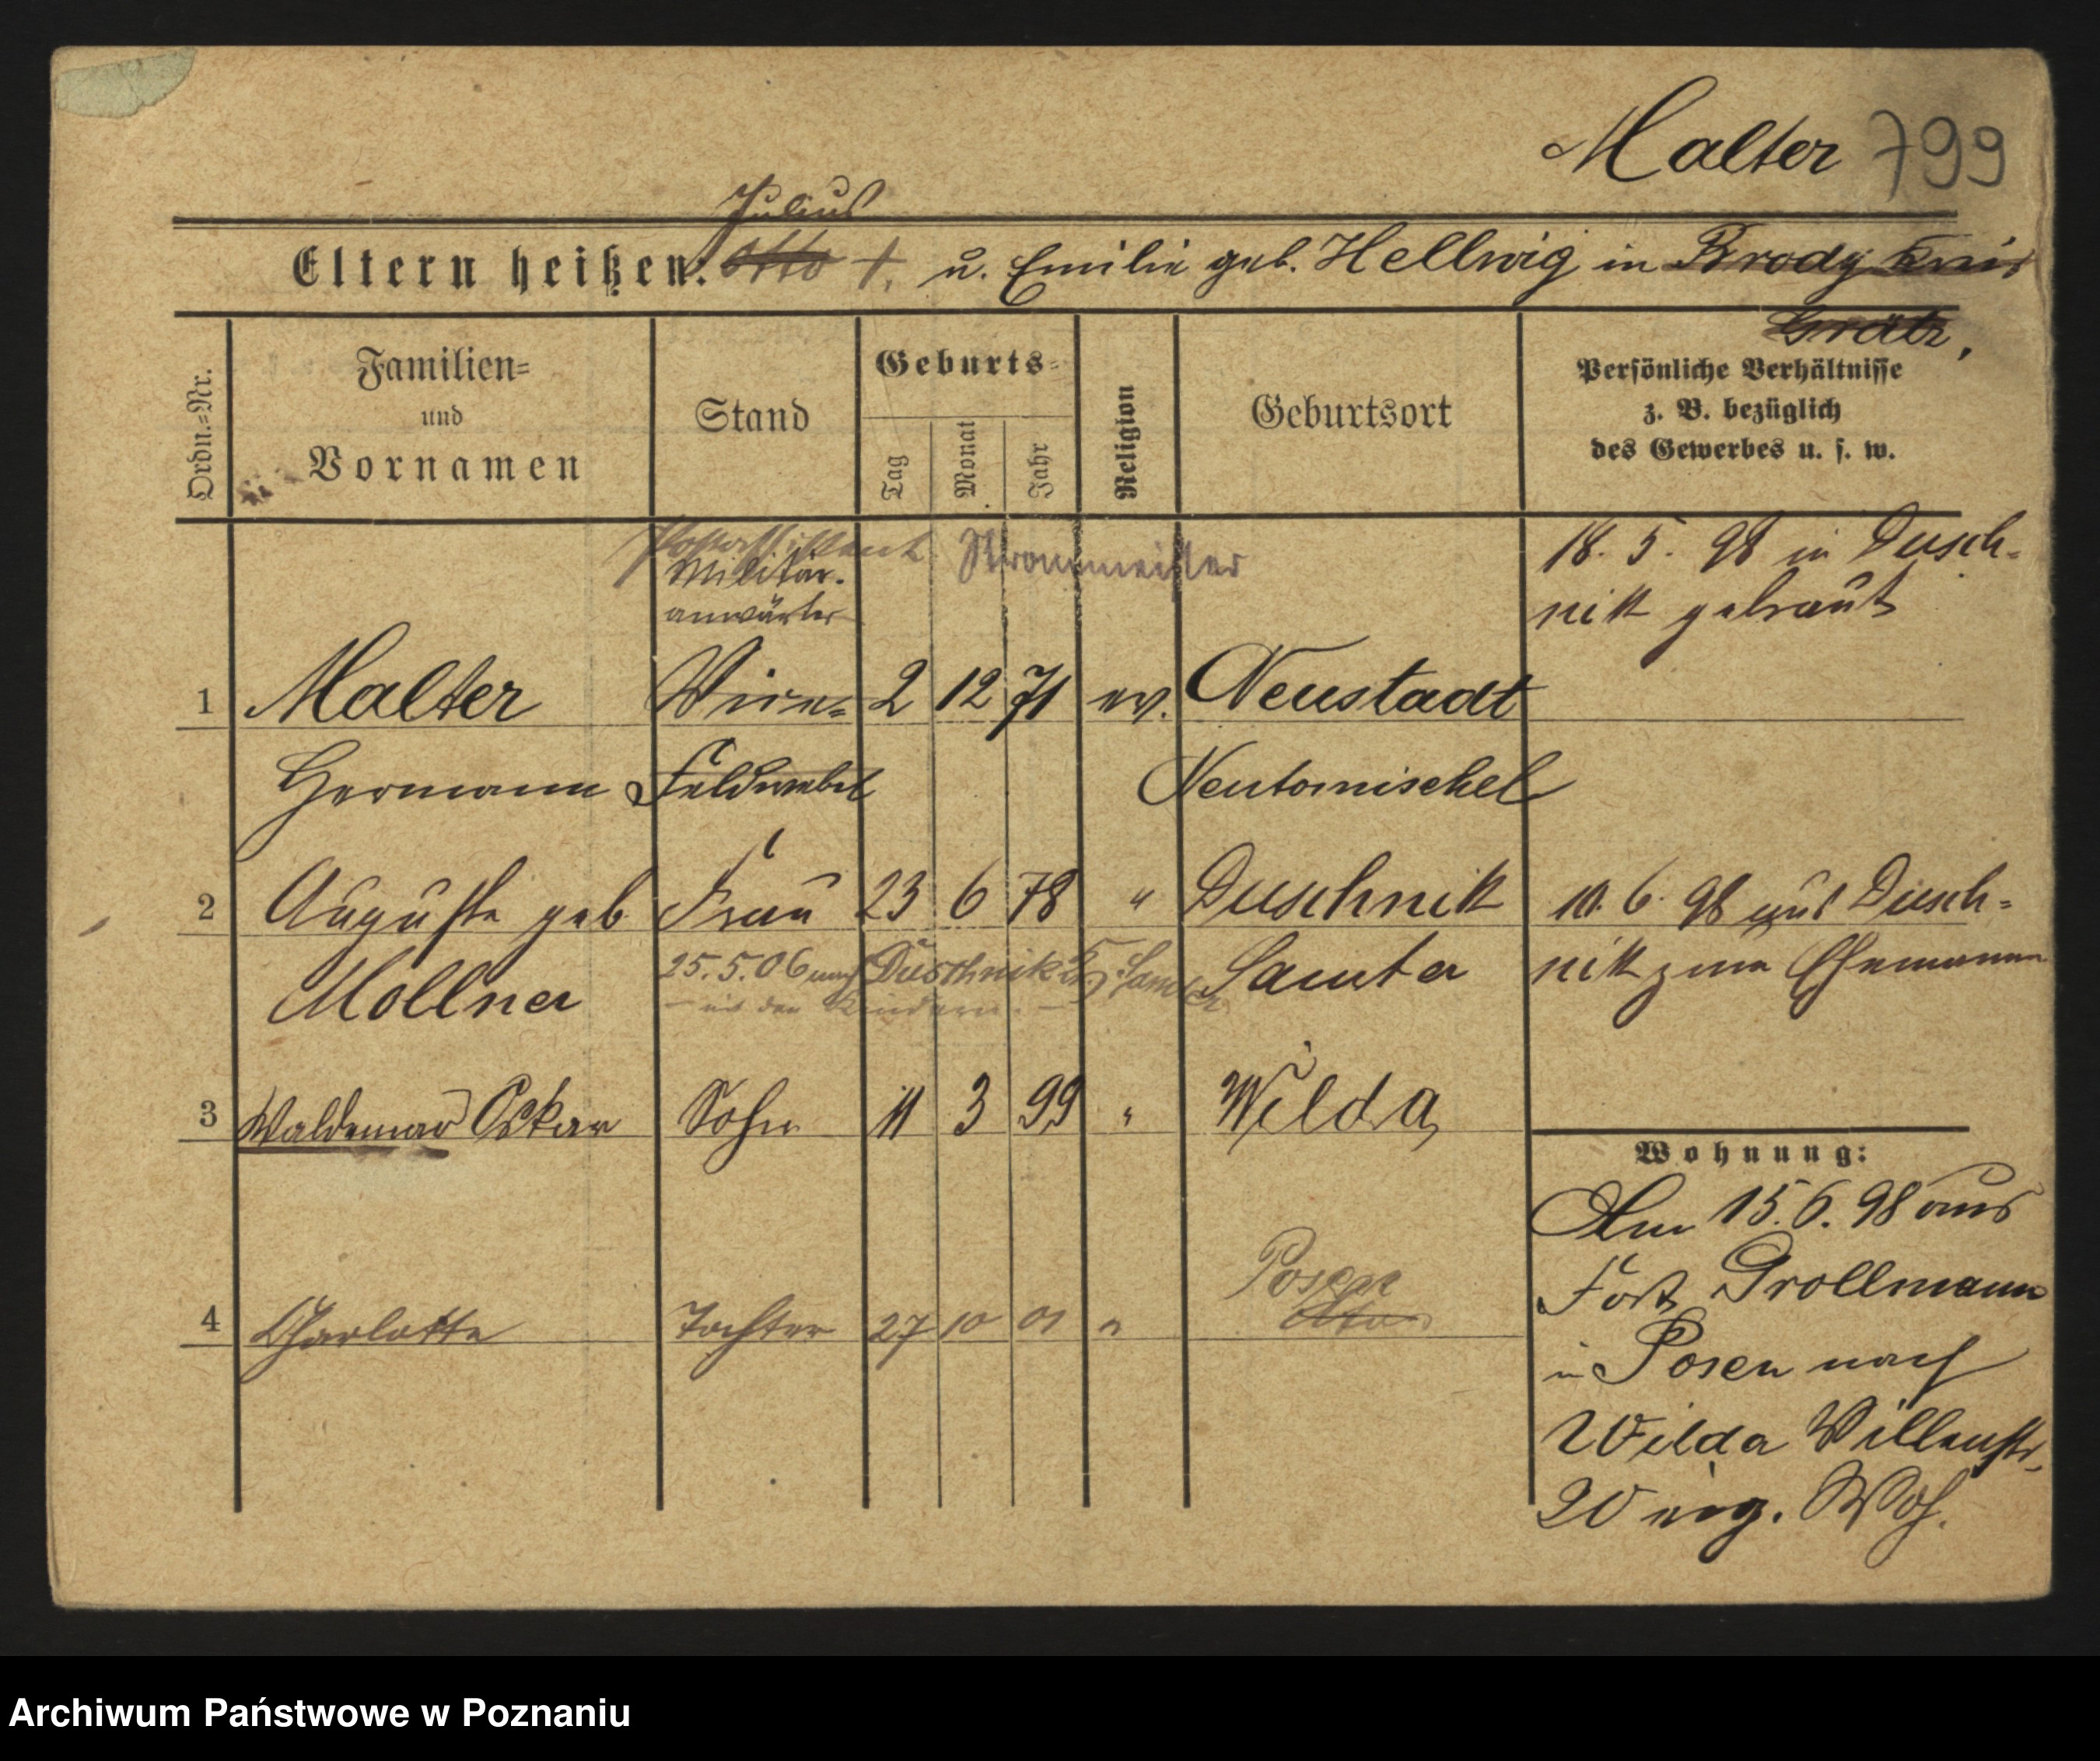 Malter 799
Julius
Eltern heißen: Otto †. u. Emilie geb. Hellwig in Brody Kreis
Grätz,
Ordn.=Nr.
Familien=
und
Vornamen
Stand
Geburts=
Tag
Monat
Jahr
Religion
Geburtsort
Persönliche Verhältnisse
z. B. bezüglich
des Gewerbes u. s. w.
Postassistent. Strommeister
Militär.
anwärter
18. 5. 98 in Dusch-
nik getraut
1 Malter Vice- 2 12 71 ev. Neustadt
Hermann Feldwebel Neutomischel
2 Auguste geb Frau 23 6 78 " Duschnik
10. 6. 98 aus Dusch=
Mollner Samter
nik zum Ehemann
25. 5. 06 nach Duschnik Samter
mit den Kindern.
3 Waldemar Oskar Sohn 11 3 99 " Wilda
4 Charlotte Tochter 27 10 01 " Posen
Wohnung:
Am 15. 6. 98 aus
Fort Grollmann
in Posen nach
Wilda Villenstr.
20 eig. Woh.
Archiwum Państwowe w Poznaniu